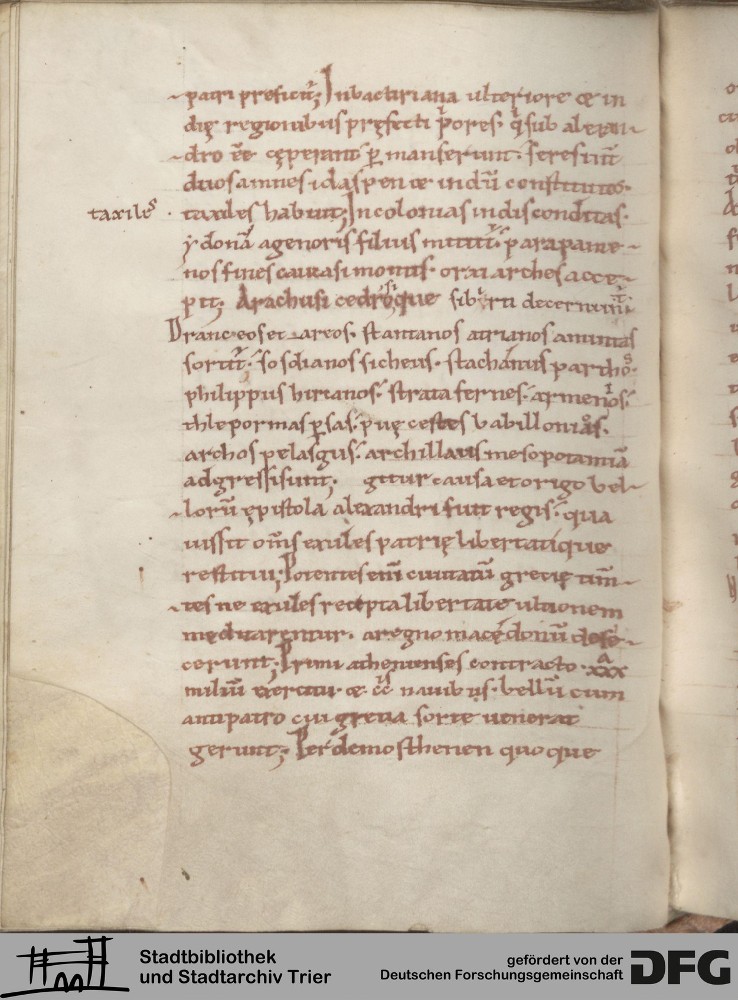 patri preficit͛; Inbactiriana ulteriore & in
dię regionibus pręfecti p̄ores. q̄ sub alexan-
dro ēē cęperant p̱ manserunt. Seres int̄
duos amnes idaspen & indū constitutos.
taxiles
taxiles habuit; Incolonias indis conditas.
ydonā agenoris filius mittit͛. parapame-
nos fines caucasi montis. oxiarches acce-
pit; Arachusi cedrosique sibirti decernunt͛.
Dranceos et areos. stantanos atrianos amintas
sortit͛. sosdianos sicheus. stachanus parthos.
philippus hircanos. stratafernes. armenios.
thlepormas p̱sas. pucęstes babillonias.
archos pelasgus. archillaus mesopotamiā
adgressi sunt; gitur causa et origo bel-
lorū epistola alexandri fuit regis. qua
iussit om̄s exules patrię libertatique
restitui; Potentes enī ciuitatū gretię tim̄-
tes ne exules recepta libertate ultionem
meditarentur. aregno macedonū defe-
cerunt; Primi athenienses contracto. xxx
miliū exercitu & cc͛ nauibus. bellū cum
antipatro cui gretia sorte uenerat
gerunt; Per demosthenen quoque
Stadtbibliothek
und Stadtarchiv Trier
gefördert von der
Deutschen Forschungsgemeinschaft
DFG